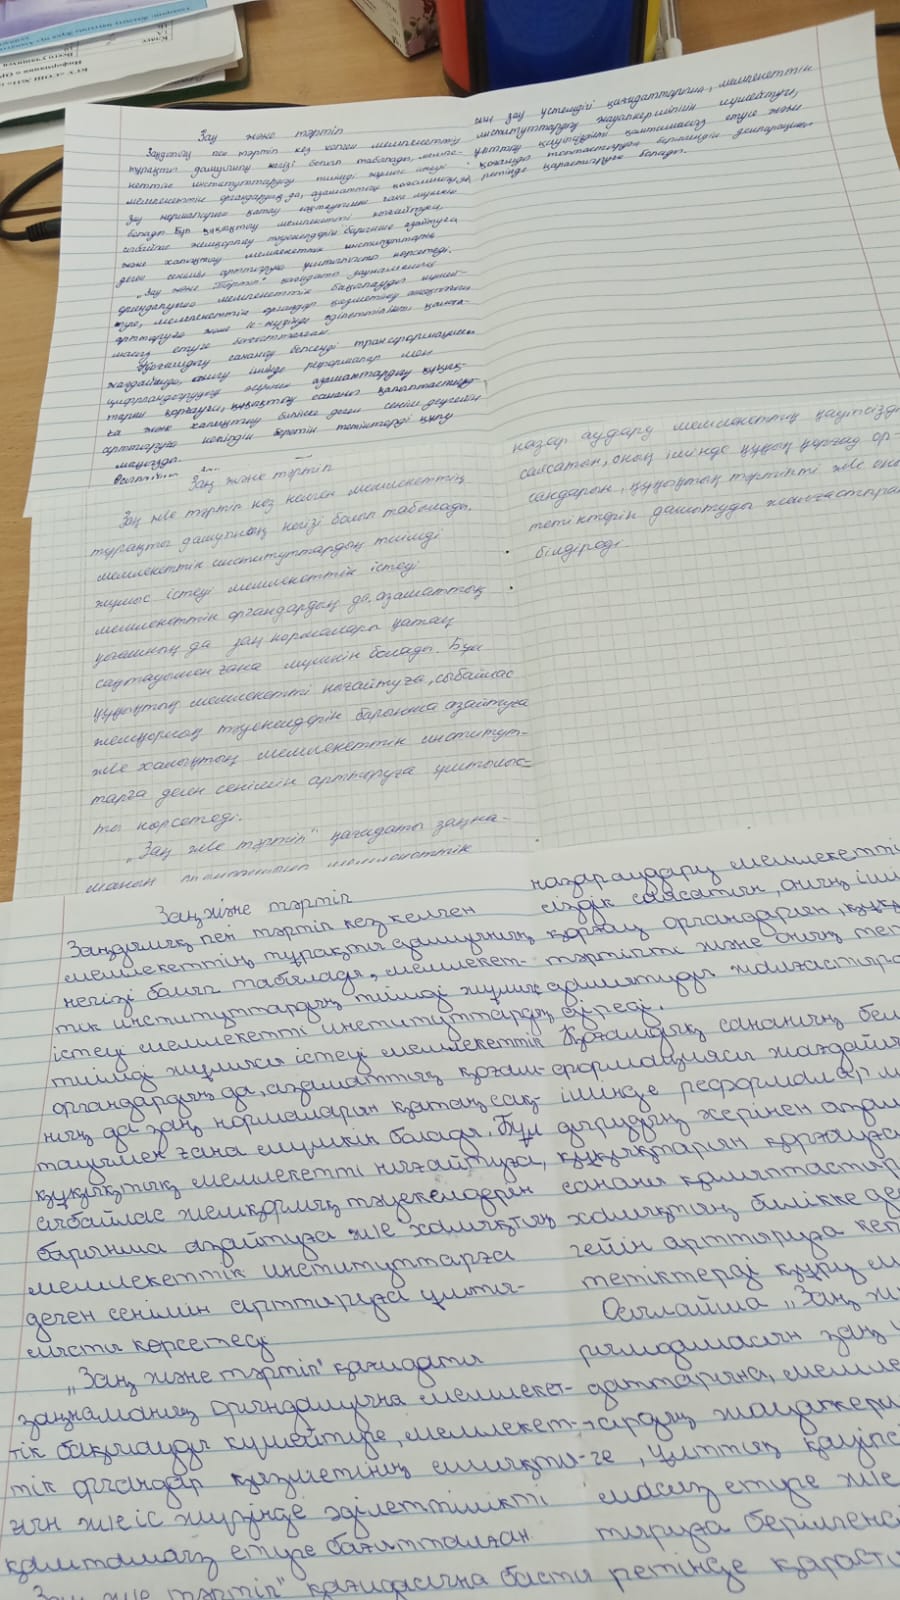 Заң және тәртіп
Заңдылық пен тәртіп кез келген мемлекеттің
тұрақты дамуының негізі болып табылады, мемле-
кеттік институттардың тиімді жұмыс істеуі
мемлекеттік органдардың да, азаматтық қоғамның да
заң нормаларын қатаң сақтауымен ғана мүмкін
болады. Бұл құқықтық мемлекетті нығайтуға
сыбайлас жемқорлық тәуекелдерін барынша азайтуға
және халықтың мемлекеттік институттарға
деген сенімін арттыруға ұмтылысты көрсетеді.
"Заң және Тәртіп" қағидаты заңнаманың
орындалуына мемлекеттік бақылауды күшей-
туге, мемлекеттік органдар қызметінің ашықтығын
арттыруға және іс-жүзінде әділеттілікті қамта-
масыз етуге бағытталған.
Қоғамдық сананың белсенді трансформациясы
жағдайында, оның ішінде реформалар мен
цифрландырудың әсерінен азаматтардың құқық-
тарын қорғауға, құқықтық сананы қалыптастыру-
ға және халықтың билікке деген сенім деңгейін
арттыруға кепілдік беретін тетіктерді құру
маңызды.
заң үстемдігі қағидаттарына, мемлекеттік
институттардың жауапкершілігін күшейтуге,
ұлттық қауіпсіздікті қамтамасыз етуге және
ретінде қарастыруға болады.
Заң және тәртіп
Заң және тәртіп кез келген мемлекеттің
тұрақты дамуының негізі болып табылады.
мемлекеттік институттардың тиімді
жұмыс істеуі мемлекеттік істеуі
мемлекеттік органдардың да, азаматтық
қоғамның да заң нормалары қатаң
сақтауымен ғана мүмкін болады. Бұл
құқықтық мемлекетті нығайтуға, сыбайлас
жемқорлық тәуекелдерін барынша азайтуға
және халықтың мемлекеттік институт-
тарға деген сенімін арттыруға ұмтылыс-
ты көрсетеді.
"Заң және тәртіп" қағидаты заңна-
маның мемлекеттік
назар аудару мемлекеттің қауіпсізді
саясатын, оның ішінде құқық қорғау ор-
гандарын, құқықтық тәртіпті және оны
тетіктерін дамытуды жалғастыра
білдіреді.
Заң және тәртіп
Заңдылық пен тәртіп кез келген
мемлекеттің тұрақты дамуының
негізі болып табылады, мемлекет-
тік институттардың тиімді жұмыс
істеуі мемлекетті институттардың
тиімді жұмысы істеуі мемлекеттік
органдардың да, азаматтық қоғам-
ның да заң нормаларын қатаң сақ-
тауымен ғана мүмкін болады. Бұл
құқықтық мемлекетті нығайтуға,
сыбайлас жемқорлық тәуекелдерін
барынша азайтуға және халықтың
мемлекеттік институттарға
деген сенімін арттыруға ұмты-
лысты көрсетеді
"Заң және тәртіп" қағидаты
заңнаманың орындалуына мемлекет-
тік бақылауды күшейтуге, мемлекет-
тік органдар қызметінің ашықты-
ғын және іс жүзінде әділеттілікті
қамтамасыз етуге бағытталған
"Заң және тәртіп" қағидасына басты
назар аудару мемлекетті
сіздік саясатын, оның іші
қорғау органдарын, құқ
тәртіпті және оның тет
дамытуды жалғастыра
білдіреді.
Қоғамдық сананың бел
формациясы жағдайы
ішінде реформалар м
дырудың жерінен азам
құқықтарын қорғауға
сананы қалыптастыр
халықтың билікке де
гейін арттыруға кеп
тетіктерді құру м
Осылайша "Заң ж
заң ү
даттарына, мемле
тардың жауапкерш
ге, ұлттық қауіпс
масыз етуге және
тыруға берілген
ретінде қарасты